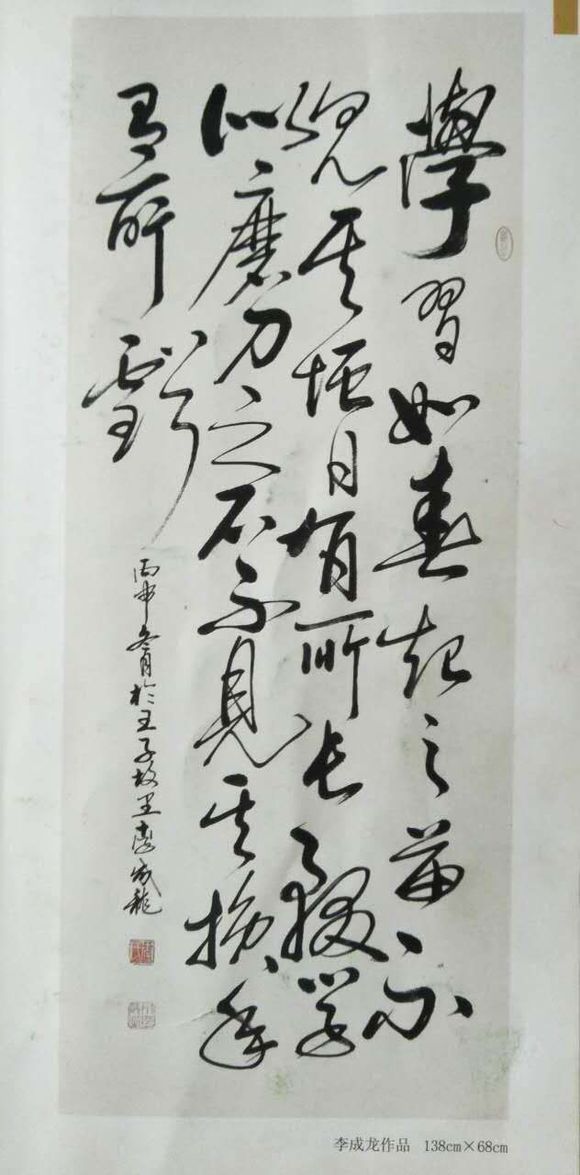 學習如春起之苗不
見其增日有所長輟學
似磨刀之石不見其損年
有所虧
丙申冬月於王子故里李成龍
李成龙作品 138cm×68cm